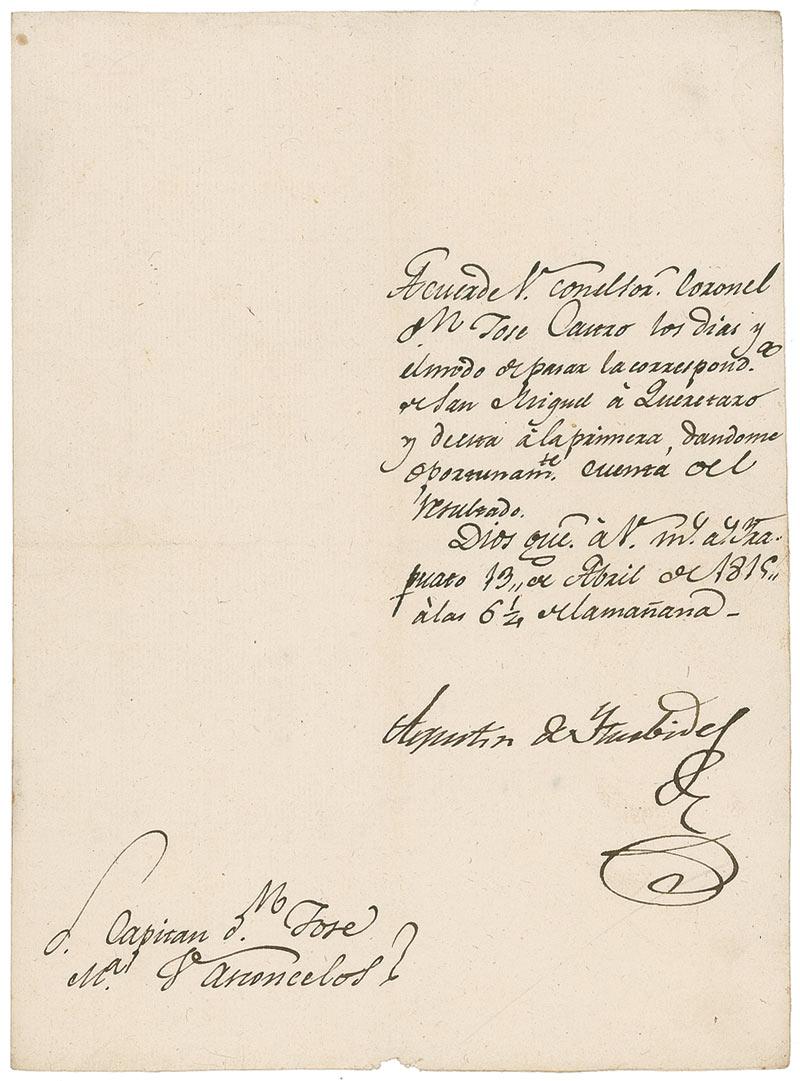 Acuerde V. con el Sor. Coronel
Dn Jose Castro los dias y
el modo de pasar la correspond.a
de San Miguel á Queretaro
y desta á la primera, dandome
oportunam.te cuenta del
resultado.
Dios gue. á V. m.s a.s Yra-
puato 13,, de Abril de 1815,,
á las 6 1/2 de la mañana _
Agustin de Yturbide
S. Capitan D.n Jose
M.a Vasconcelos